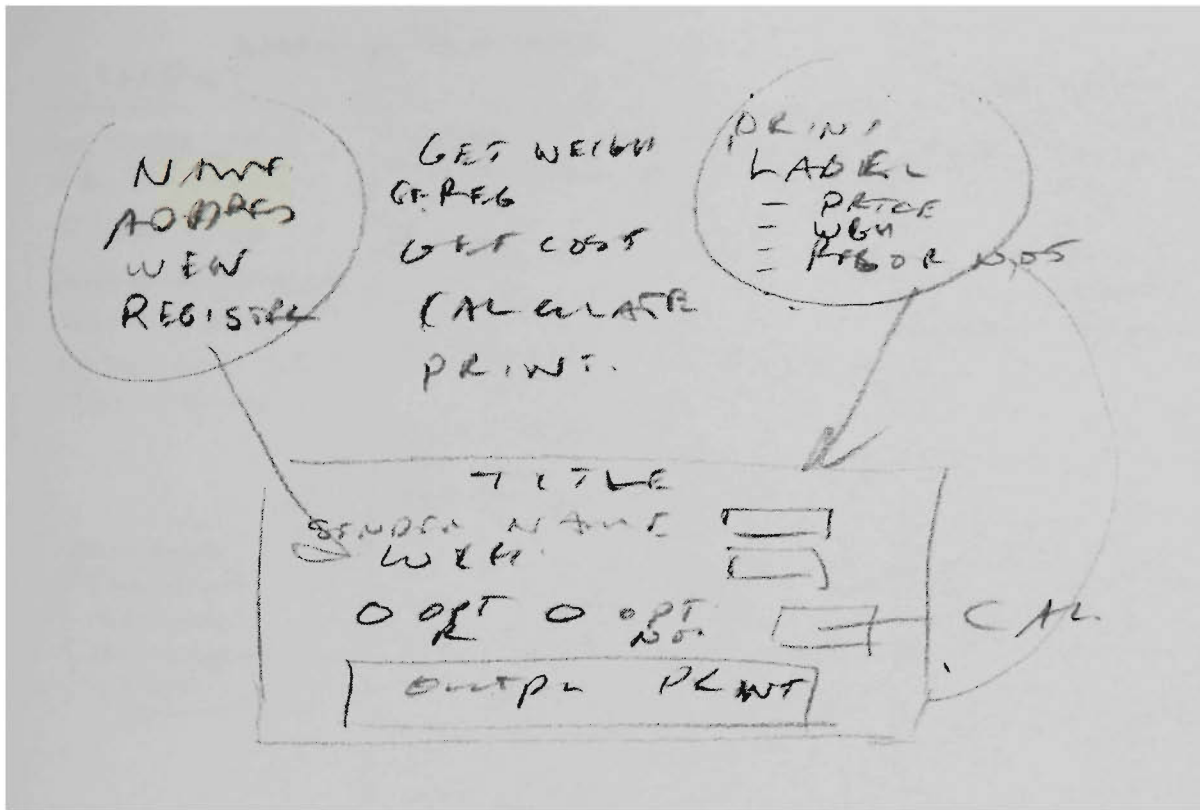 NAME
ADDRES
WEW
REGISTRE
GET WEIGH
GET COST
CALCULATE
PRINT.
PRINT
LABEL
- PRICE
- WGH
- REG OR NOT
TITLE
SENDER NAME
WGH.
OPT R OPT NO.
CAL
PRINT